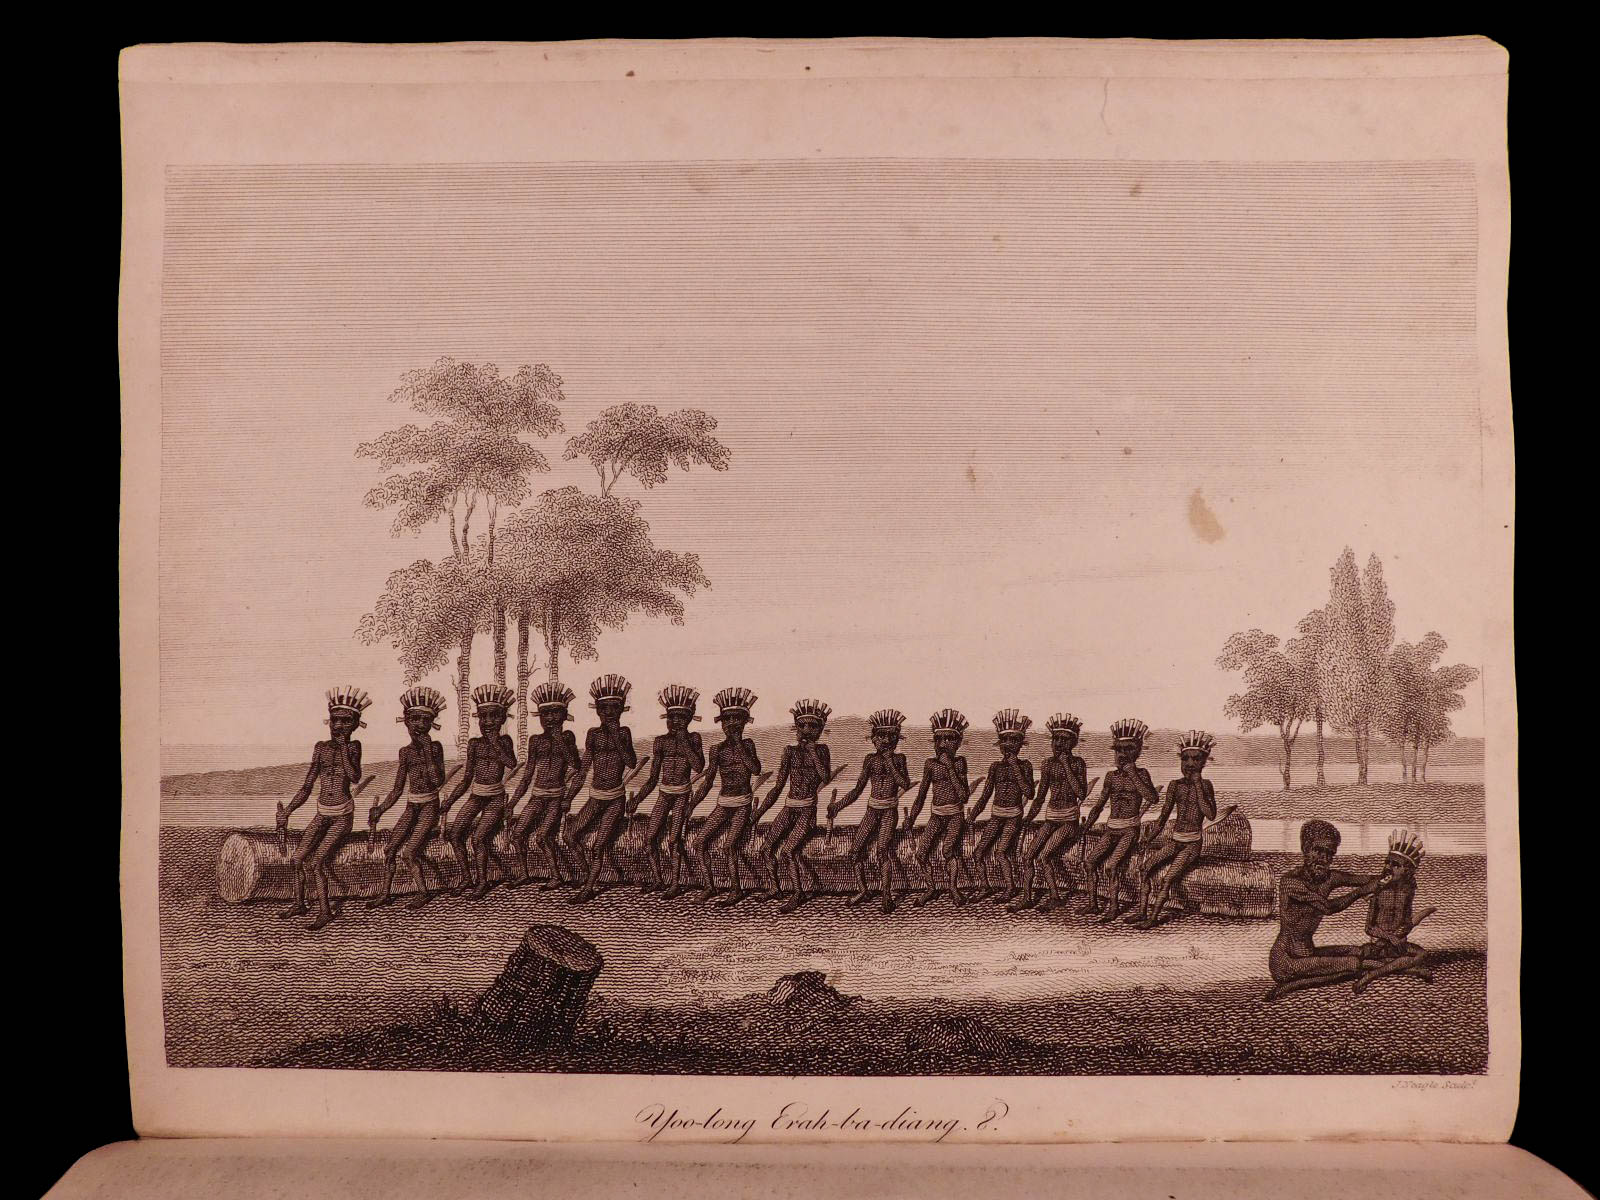 J. Neagle Sculpt.
Yoo-long Erah-ba-diang. 8.